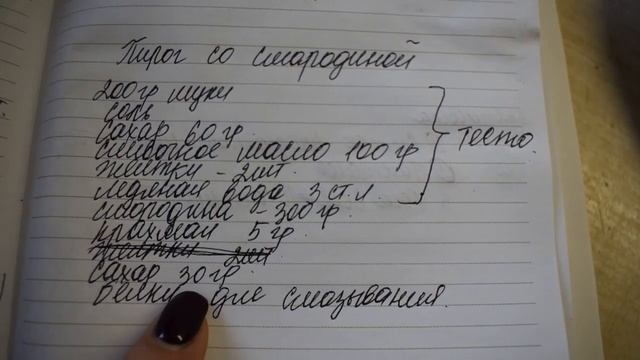 Пирог со смародиной
200гр муки
соль
сахар 60 гр.
сливочное масло 100 гр
желтки - 2 шт.
ледяная вода 3 ст. л
тесто.
смародина - 300 гр.
крахмал 5 гр.
желтки 2шт
сахар 30 гр.
белки для смазывания.